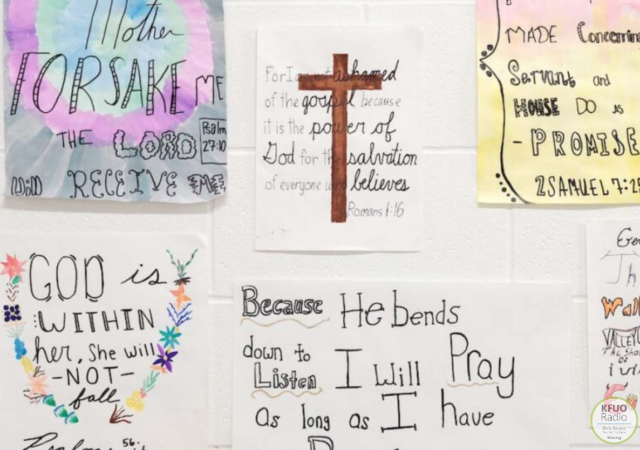 Mother
FORSAKE ME
THE LORD
Psalm
27:10
Will RECEIVE ME
For I am not ashamed
of the gospel because
it is the power of
God for the salvation
of everyone who believes
Romans 1:16
MADE Concerning
Servant and
HOUSE DO as
-PROMISE
2 SAMUEL 7:2
GOD is
WITHIN
her, She will
-NOT-
fall
Because He bends
down to
Listen I will Pray
as long as I have
Th
Wal
VALLEY
KFUO
Radio